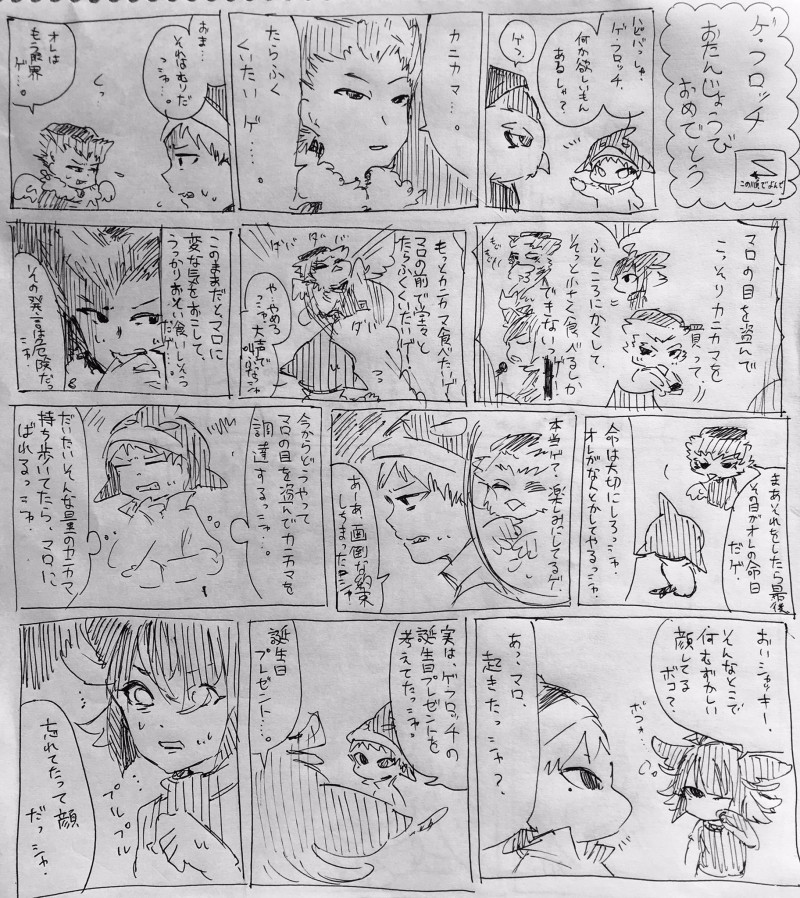 ゲ・フロッチ
おたんじょうび
おめでとう
この順でよんで
ハピバっシャ、
ゲ・フロッチ。
何か欲しいもん
あるシャ?
ゲっ
カニカマ…。
たらふく
くいたいゲ…。
おま…
それはむりだ
っシャ…。
くっ
オレは
もう限界
ゲ…。
マロの目を盗んで
こっそりカニカマを
買って、
ふところにかくして、
そっと小さく食べるしか
できないっ
もっとカニカマ食べたいゲ!
マロの前で堂々と
たらふくくいたいゲ!
ダバ
ダバ
ダバ
や…やめろ
っシャ、大声で
このままだと、マロに
変な気をおこして、
うっかりおそい食いしそう
だゲ…。
その発言は危険だっ
シャ!
まあそれをしたら最後
その日がオレの命日
だゲ。
命は大切にしろっシャ。
オレがなんとかしてやるっシャ。
本当ゲ?楽しみにしてるゲ。
あーあ、面倒な約束
しちまったっシャ
今からどうやって
マロの目を盗んでカニカマを
調達するっシャ…。
だいたいそんな量のカニカマ
持ち歩いてたら、マロに
ばれるっシャ。
おいシャッキー、
そんなとこで
何むずかしい
顔してる
ボコ?
あっ、マロ、
起きたっシャ?
実は、ゲフロッチの
誕生日プレゼントを
考えてたっシャ。
誕生日
プレゼント…。
プルプル
忘れてたって顔
だっシャ。